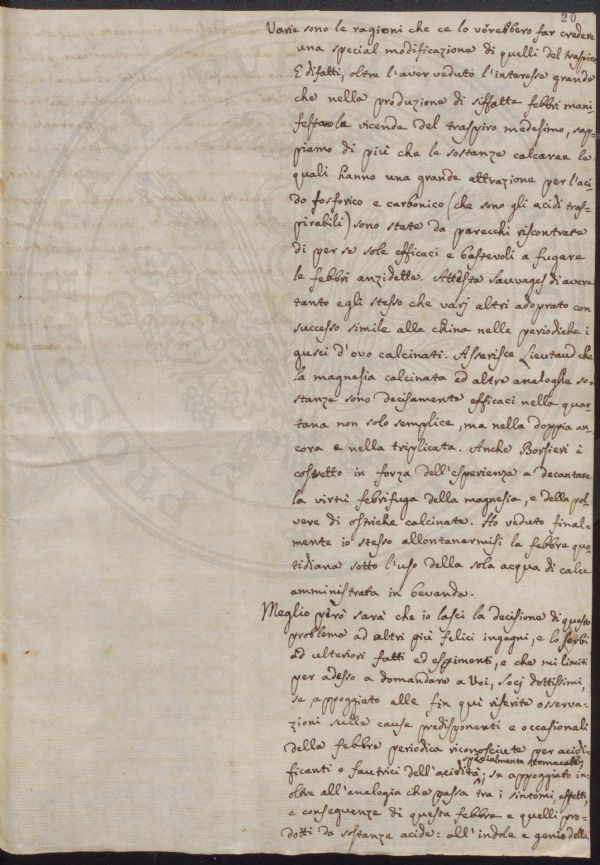 20
Varie sono le ragioni che ce lo vorrebbero far credere
una special modificazione di quelli del traspiro
E difatti, oltre l'aver veduto l'interesse grande
che nella produzione di siffatte febbri mani-
festano le vicende del traspiro medesimo, sap-
piamo di più che le sostanze calcaree le
quali hanno una grande attrazione per l'aci-
do fosforico e carbonico (che sono gli acidi tras=
pirabili) sono state da parecchi riscontrate
di per se sole efficaci e bastevoli a fugare
le febbri anzidette. Attesta Sauvages di avere
tanto egli stesso che varj altri adoprato con
successo simile alla china nelle periodiche i
gusci d'ovo calcinati. Asserisce Lieutaud che
la magnesia calcinata ed altre analoghe so-
stanze sono decisamente efficaci nella quar-
tana non solo semplice, ma nella doppia an-
cora e nella triplicata. Anche Borsieri è
costretto in forza dell'esperienza a decantare
la virtù febrifuga della magnesia, e della pol-
vere di ostriche calcinate. Ho veduto final-
mente io stesso allontanarmisi la febbre quo-
tidiana sotto l'uso della sola acqua di calce
amministrata in bevanda.
Meglio però sarà che io lasci la decisione di questo
problema ad altri più felici ingegni, e lo serbi
ad ulteriori fatti ed esperimenti, e che mi limiti
per adesso a domandare a Voi, Socj dottissimi,
se appoggiato alle fin qui riferite osserva-
zioni sulle cause predisponenti e occasionali
della febbre periodica riconosciute per acidi-
specialmente stomacale
ficanti o fautrici dell'acidità; se appoggiato in-
oltre all'analogia che passa tra i sintomi, effetti,
e conseguenze di questa febbre e quelli pro-
dotti da sostanze acide: all'indole e genio della